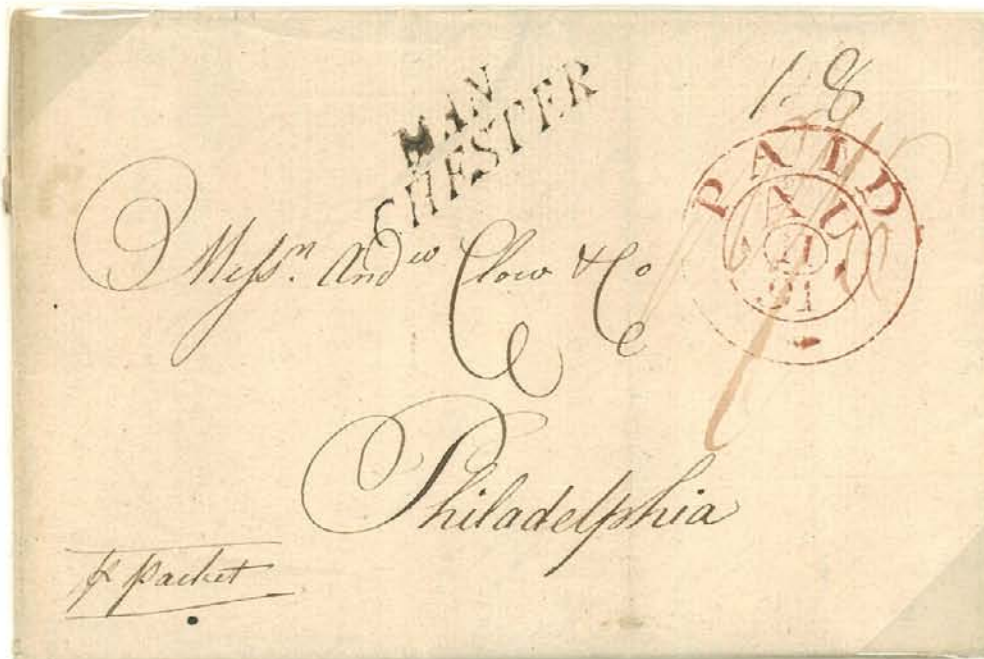 MAN
CHESTER
1.8
PAID
AU
91
Messrs. Andw Clow & Co
Philadelphia
p packet